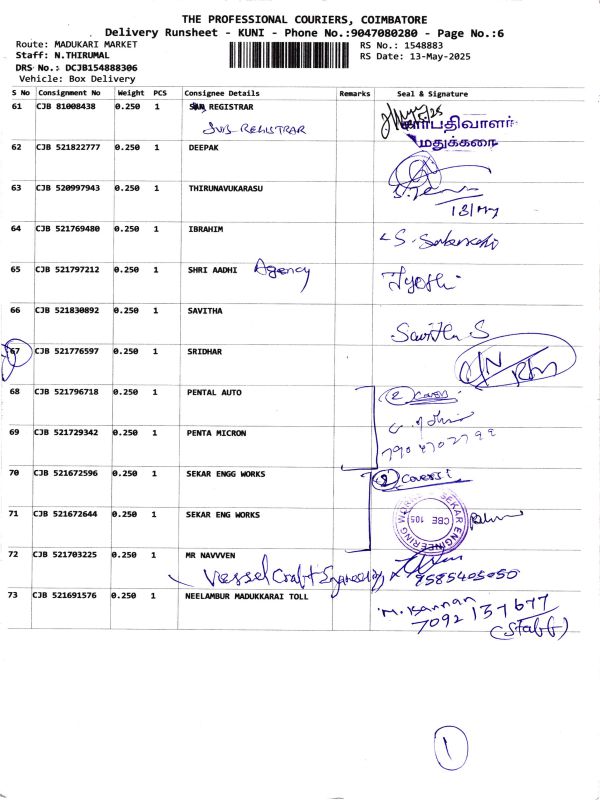 THE PROFESSIONAL COURIERS, COIMBATORE
Delivery Runsheet - KUNI - Phone No.:9047080280 - Page No.:6
Route: MADUKARI MARKET
RS No.: 1548883
Staff: N.THIRUMAL
RS Date: 13-May-2025
DRS No.: DCJB154888306
Vehicle: Box Delivery
S No Consignment No Weight PCS Consignee Details Remarks Seal & Signature
61 CJB 81008438 0.250 1 REGISTRAR
SUB REGISTRAR
சார்பதிவாளர்
மதுக்கரை
62 CJB 521822777 0.250 1 DEEPAK
63 CJB 520997943 0.250 1 THIRUNAVUKARASU
13/May
64 CJB 521769480 0.250 1 IBRAHIM
65 CJB 521797212 0.250 1 SHRI AADHI Agency Jyothi
66 CJB 521830892 0.250 1 SAVITHA
Savitha S
67 CJB 521776597 0.250 1 SRIDHAR
68 CJB 521796718 0.250 1 PENTAL AUTO 2 Covers
69 CJB 521729342 0.250 1 PENTA MICRON
70 CJB 521672596 0.250 1 SEKAR ENGG WORKS 2 Covers
71 CJB 521672644 0.250 1 SEKAR ENG WORKS SEKAR ENGINEERING WORKS CBE 105
72 CJB 521703225 0.250 1 MR NAVVVEN
Vessel Craft Engineering 9585405050
73 CJB 521691576 0.250 1 NEELAMBUR MADUKKARAI TOLL M. Kannan
7092 137677
(Staff)
1